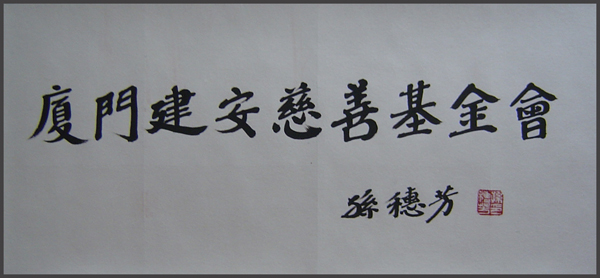 廈門建安慈善基金會
孫穗芳